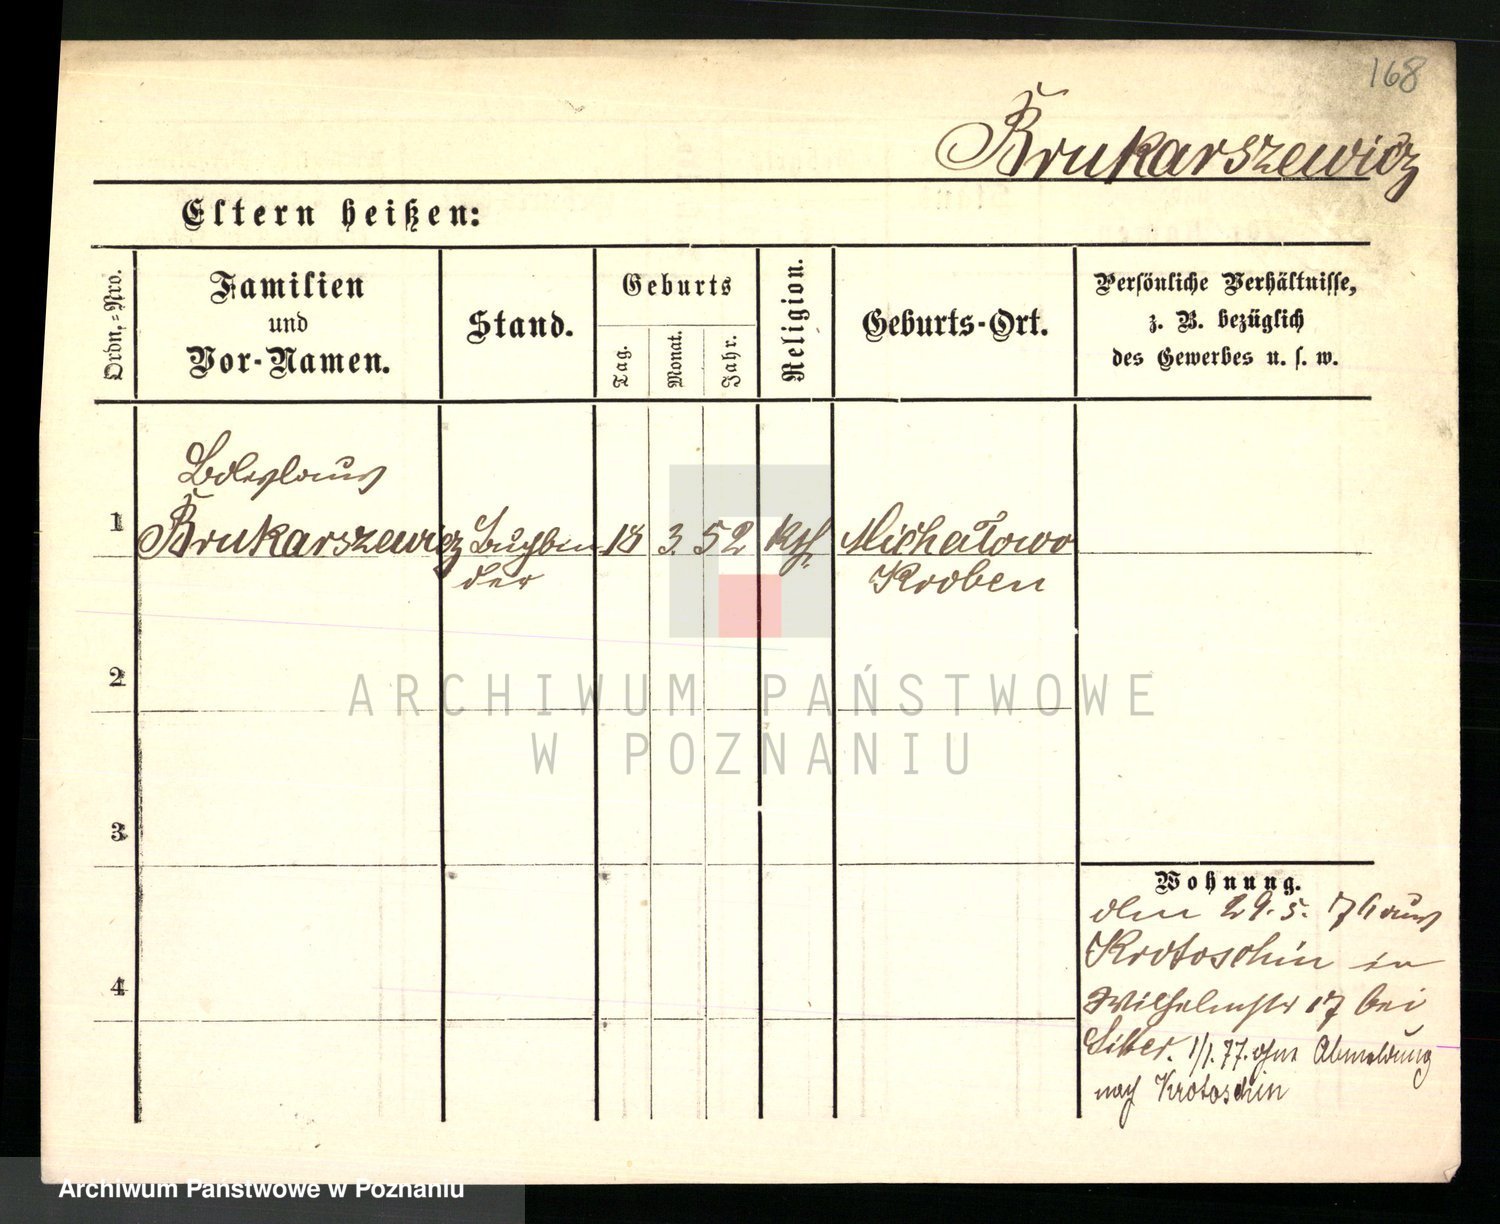 168
Brukarszewicz
Eltern heißen:
Ordn.-Nro.
Familien
und
Vor-Namen.
Stand.
Geburts
Tag.
Monat.
Jahr.
Religion.
Geburts-Ort.
Persönliche Verhältnisse,
z. B. bezüglich
des Gewerbes u. s. w.
Boleslaus
1 Brukarszewicz Buchbin 18 3. 52 kth. Michałowo
der Kroben
2
3
4
ARCHIWUM PAŃSTWOWE
W POZNANIU
Wohnung.
den 29. 5. 76 aus
Krotoschin in
Wilhelmstr 17 bei
1/1. 77. ohne Abmeldung
nach Krotoschin
Archiwum Państwowe w Poznaniu